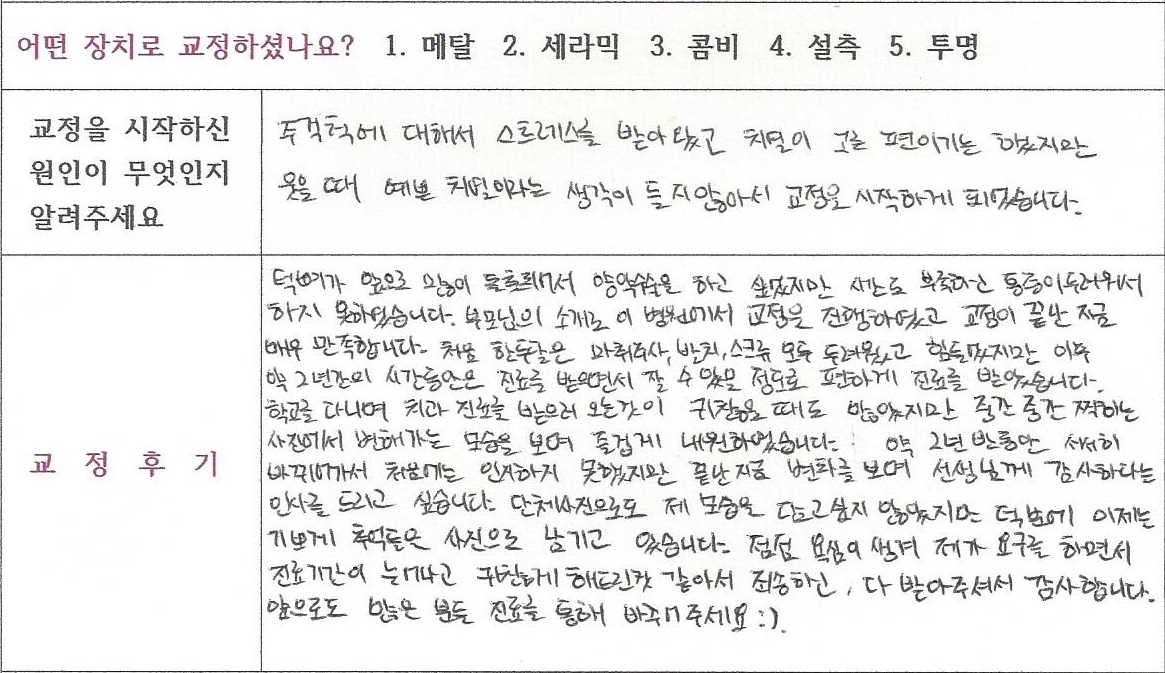 어떤 장치로 교정하셨나요? 1. 메탈 2. 세라믹 3. 콤비 4. 설측 5. 투명
교정을 시작하신
원인이 무엇인지
알려주세요
주걱턱에 대해서 스트레스를 받아왔고 치열이 고른 편이기는 하였지만
웃을 때 예쁜 치열이라는 생각이 들지않아서 교정을 시작하게 되었습니다.
교 정 후 기
턱뼈가 앞으로 많이 돌출돼서 양악수술을 하고 싶었지만 시간도 부족하고 통증이두려워서
하지 못하였습니다. 부모님의 소개로 이 병원에서 교정을 진행하였고 교정이 끝난 지금
매우 만족합니다. 처음 한두달은 마취주사, 발치, 스크류 모두 두려웠고 힘들었지만 이후
약 2년간의 시간동안은 진료를 받으면서 잘 수 있을 정도로 편하게 진료를 받았습니다.
학교를 다니며 치과 진료를 받으러 오는것이 귀찮을 때도 많았지만 중간 중간 찍하는
사진에서 변해가는 모습을 보며 즐겁게 내원하였습니다. 약 2년 반동안 서서히
바뀌어가서 처음에는 인지하지 못했지만 끝난지금 변화를 보며 선생님께 감사하다는
인사를 드리고 싶습니다. 단체사진으로도 제 모습을 담고싶지 않았지만 덕분에 이제는
기쁘게 추억들은 사진으로 남기고 있습니다. 점점 욕심이 생겨 제가 요구를 하면서
진료기간이 늘어나고 귀찮게 해드린것 같아서 죄송하고, 다 받아주셔서 감사합니다.
앞으로도 많은 분들 진료를 통해 바꿔주세요 :).